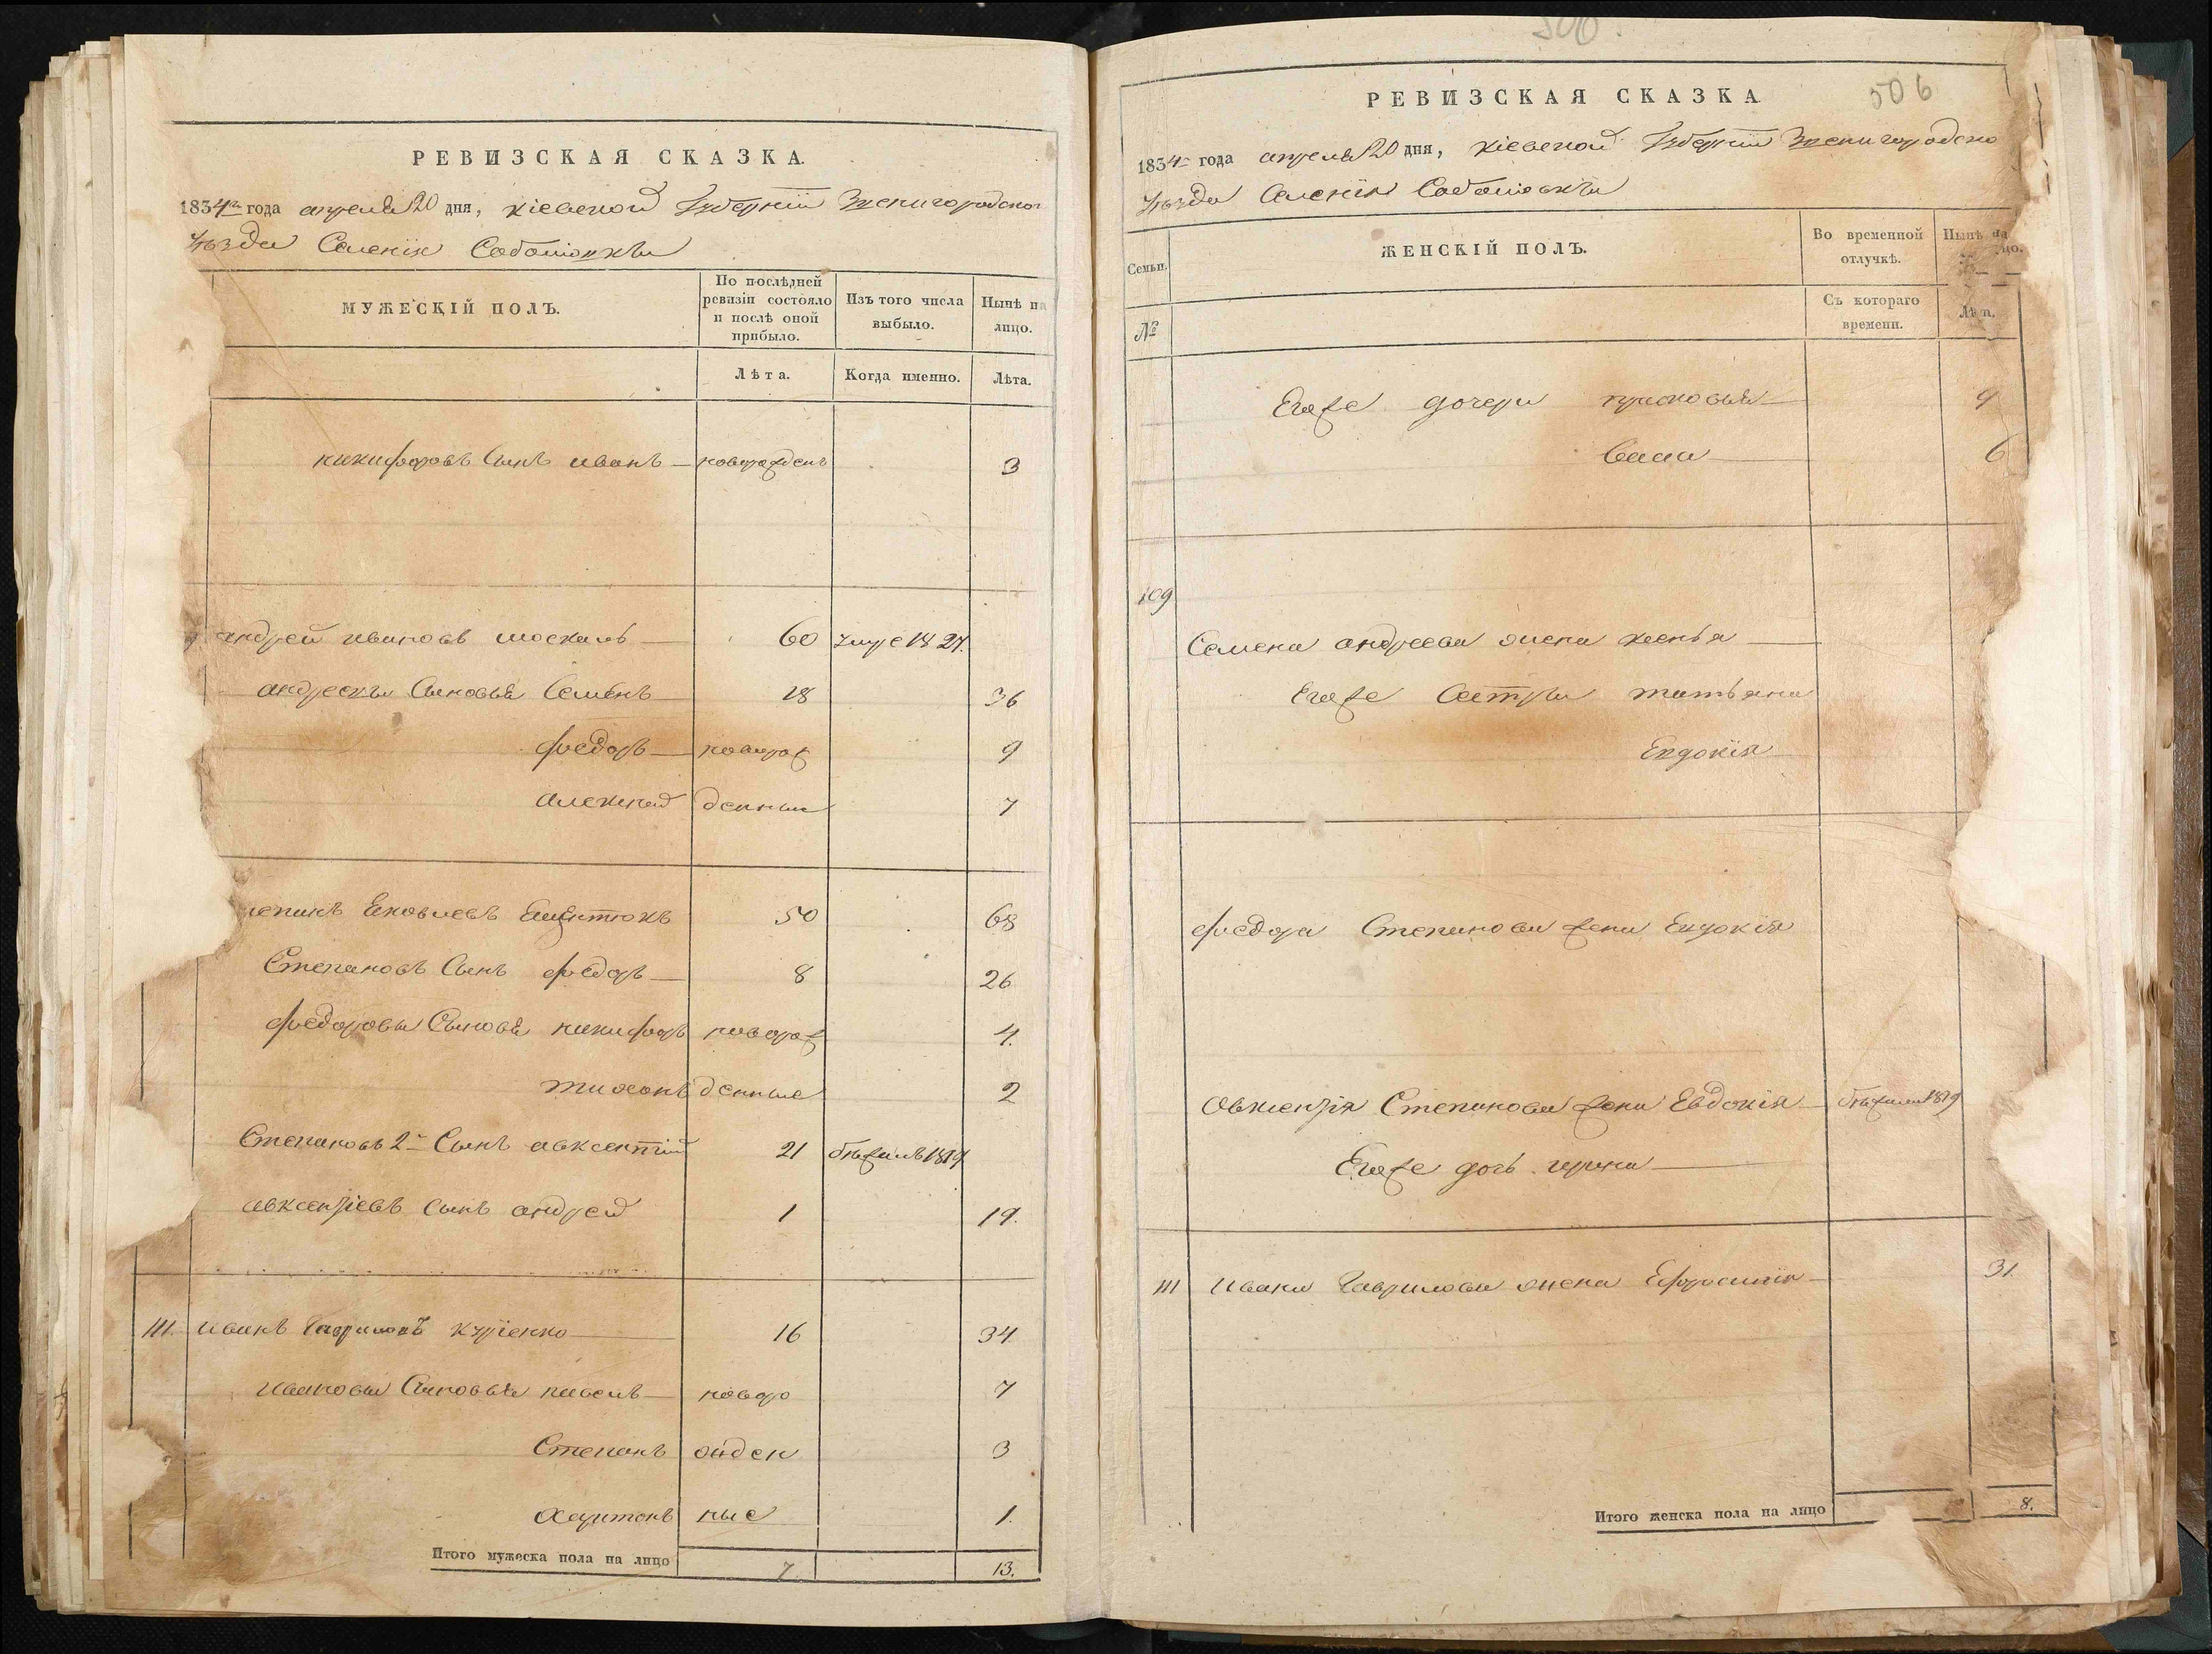 РЕВИЗСКАЯ СКАЗКА.
1834го года апреля 20 дня, Кіевской Губерніи Звенигородского
Уѣзда Селенія Соболіовки
МУЖЕСКІЙ ПОЛЪ.
По послѣдней ревизіи состояло и послѣ оной прибыло.
Изъ того числа выбыло.
Нынѣ на лицо.
Лѣта.
Когда именно.
Лѣта.
никифоровъ Сынъ иванъ новорожденъ 3
андрей ивановъ москаль 60 умре 1827.
андреевы Сыновья Семенъ 18 36
федоръ новорож 9
алексей денные 7
Яковлевъ 50 68
Степановъ Сынъ федоръ 8 26
федоровы Сыновья никифоръ новорож 4.
тихонъ денные 2
Степановъ 2й Сынъ авксентій 21 бѣжалъ 1819
авксентіевъ Сынъ андрей 1 19.
111. иванъ Гавриловъ куріенко 16 34
ивановы Сыновья павелъ новоро 7
Степанъ жден 3
Харитонъ ные 1.
Итого мужеска пола на лицо 7 13.
506
РЕВИЗСКАЯ СКАЗКА
1834го года апреля 20 дня, Кіевской Губерніи Звенигородского
Уѣзда Селенія Соболіовки
Семьи.
ЖЕНСКІЙ ПОЛЪ.
Во временной отлучкѣ.
Нынѣ на лицо.
№
Съ котораго времени.
Лѣта.
Егоже дочери прасковья 9
6
109
Семена андреева жена ксенья
Егоже Сестры татьяна
Евдокія
федора Степанова жена Евдокія
Авксентія Степанова жена Евдокія бѣжала 1819
Егоже дочь ирина
111 ивана Гаврилова жена Ефросинія 31.
Итого женска пола на лицо 8.